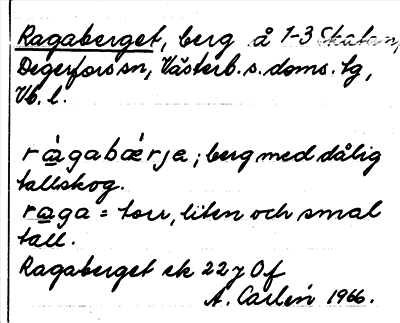 Ragaberget, berg å 1-3 Skatan,
Degerfors sn, Västerb. s. doms. tg,
Vb. l.
rágabǽrjə; berg med dålig
tallskog.
raga = torr, liten och smal
tall.
Ragaberget ek 22 J 0 f
A. Carlén 1966.